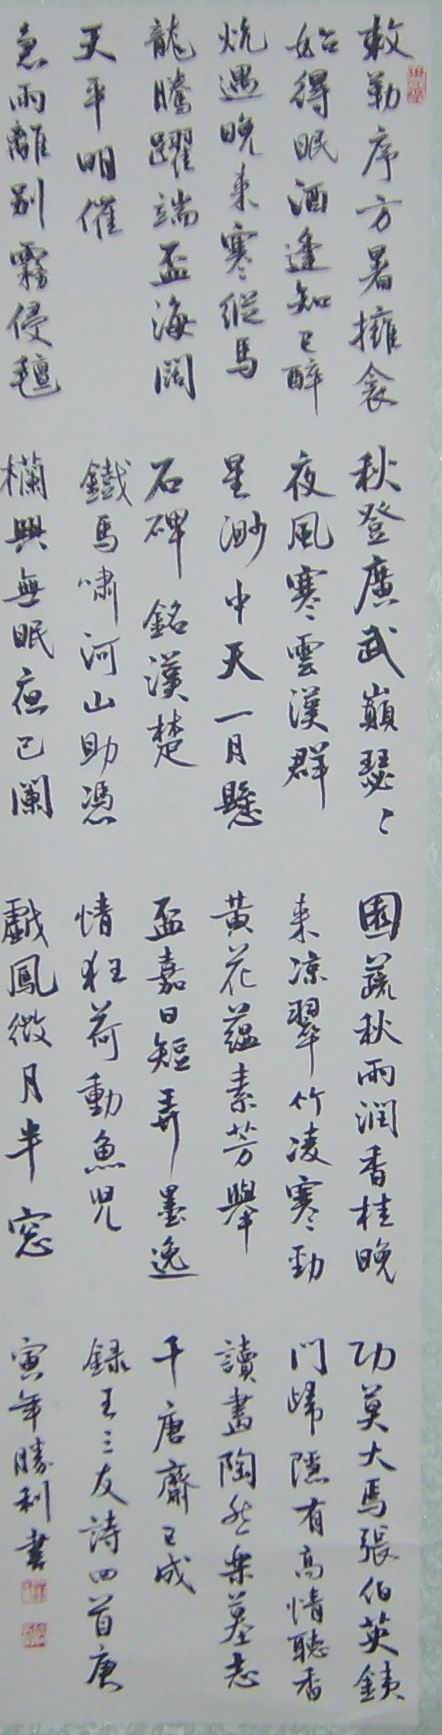 敕勒序方暑擁衾
始得眠酒逢知己醉
炕遇晚來寒縱馬
龍騰躍端盃海闊
天平明催
急雨離別霧侵氊
秋登廣武巔瑟〻
夜風寒雲漢群
星渺中天一月懸
石碑銘漢楚
鐵馬嘯河山助憑
欄興無眠夜已闌
園蔬秋雨潤香桂晚
來凉翠竹凌寒勁
黃花蘊素芳舉
盃嘉日短弄墨逸
情狂荷動魚兒
戲風微月半窓
功莫大焉張伯英鐵
門歸隱有高情聽香
讀畫陶然樂墓志
千唐齋已成
録王三友詩四首庚
寅年勝利書